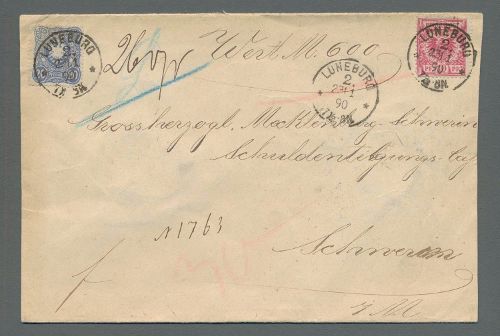 LÜNEBURG
2
90
Wert M. 600
LÜNEBURG
2
90
LÜNEBURG
2
90
Grossherzogl. Mecklenburg-Schwerin
Schuldentilgungs-
N 1763
Schwerin
i/M.